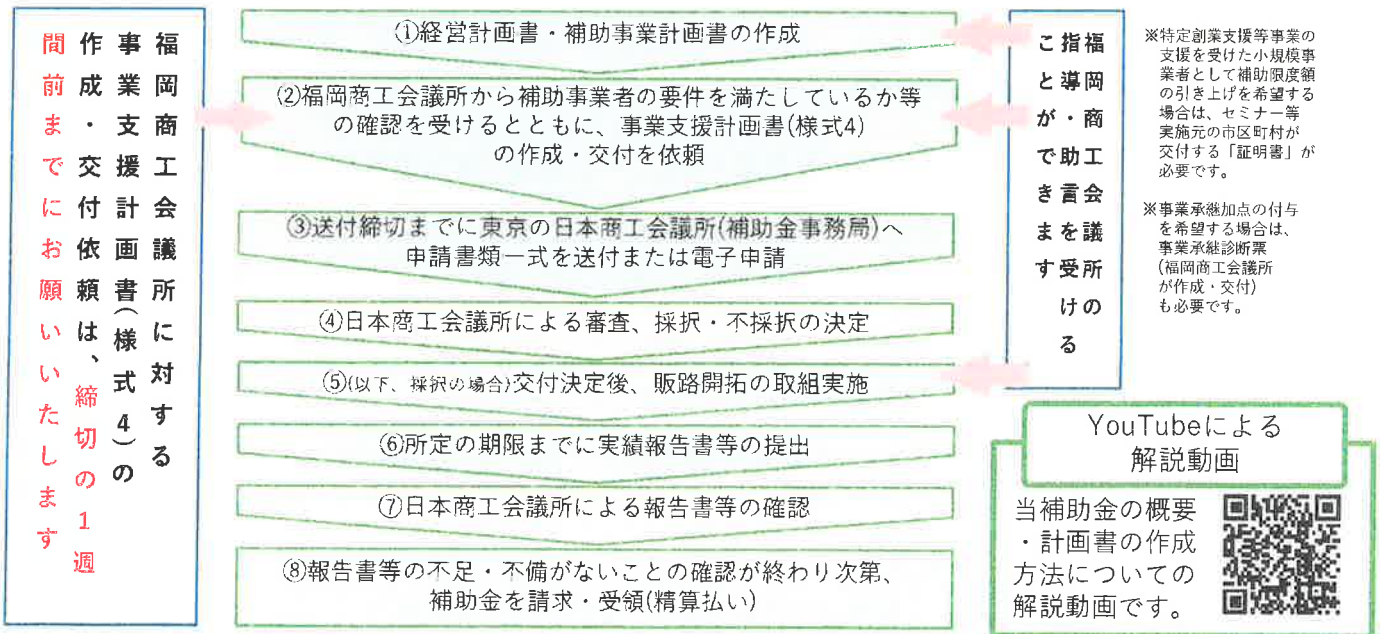 福岡商工会議所に対する
事業支援計画書(様式4)の
作成・交付依頼は、締切の1週
間前までにお願いいたします
①経営計画書・補助事業計画書の作成
②福岡商工会議所から補助事業者の要件を満たしているか等
の確認を受けるとともに、事業支援計画書(様式4)
の作成・交付を依頼
③送付締切までに東京の日本商工会議所(補助金事務局)へ
申請書類一式を送付または電子申請
④日本商工会議所による審査、採択・不採択の決定
⑤(以下、採択の場合)交付決定後、販路開拓の取組実施
⑥所定の期限までに実績報告書等の提出
⑦日本商工会議所による報告書等の確認
⑧報告書等の不足・不備がないことの確認が終わり次第、
補助金を請求・受領(精算払い)
福岡商工会議所の
指導・助言を受ける
ことができます
※特定創業支援等事業の
支援を受けた小規模事
業者として補助限度額
の引き上げを希望する
場合は、セミナー等
実施元の市区町村が
交付する「証明書」が
必要です。
※事業承継加点の付与
を希望する場合は、
事業承継診断票
(福岡商工会議所
が作成・交付)
も必要です。
YouTubeによる
解説動画
当補助金の概要
・計画書の作成
方法についての
解説動画です。